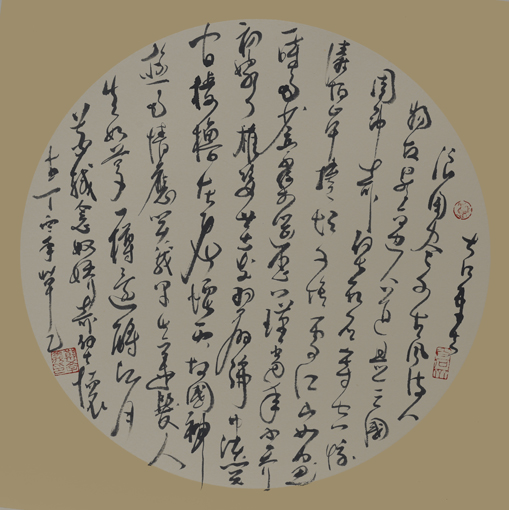 大江東去
浪淘盡千古風流人
物故壘西邊人道是三國
周郎赤壁亂石穿空驚
濤拍岸捲起千堆雪江山如畫
一時多少豪傑遙想公瑾當年小喬
初嫁了雄姿英發羽扇綸巾談笑
間檣櫓灰飛煙滅故國神
遊多情應笑我早生華髮人
生如夢一樽還酹江月
蘇軾念奴嬌赤壁懷古
丁酉年